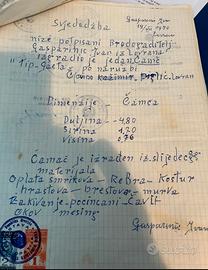 Gasparinic Ivan
Svjedodžba
Lovran
niže potpisani Brodograditelj
Gasparinic Ivan iz Lovrana
izgradio je jedan Čamac
"Tip-Gaeta" po narudžbi
Lovran
Dimenzije - Čamca
Duljina - 4,80
Širina 1,20
Visina 0,76
Čamac je izrađen iz slijedećeg
materijala
Oplata smrikova - Rebra - Kostur
hrastova - brestova - murva
Zakivanje - pocinčani čavli
okov mesing
Gasparinic Ivan
subito